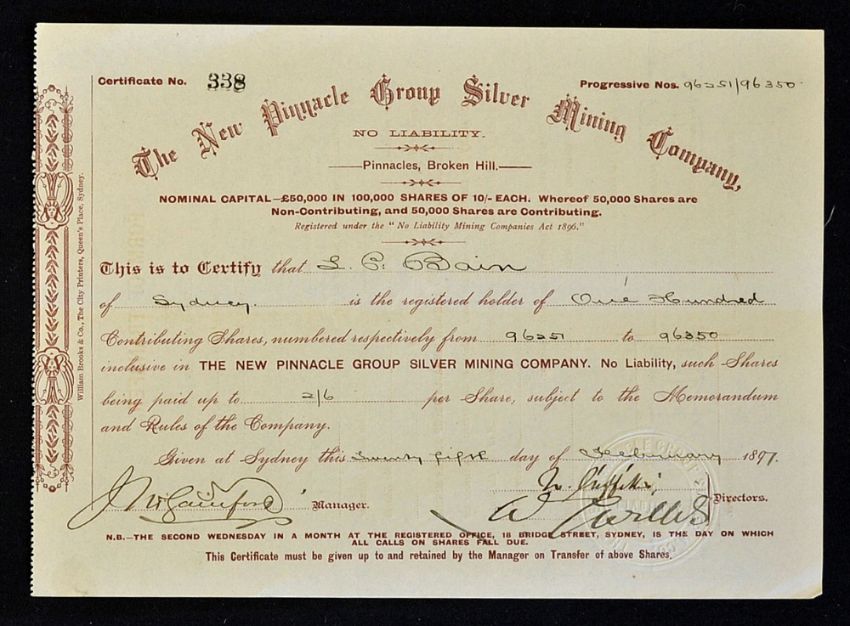 Certificate No. 338
Progressive Nos. 96251/96350
The New Pinnacle Group Silver Mining Company,
NO LIABILITY.
Pinnacles, Broken Hill.
NOMINAL CAPITAL—£50,000 IN 100,000 SHARES OF 10/- EACH. Whereof 50,000 Shares are
Non-Contributing, and 50,000 Shares are Contributing.
Registered under the "No Liability Mining Companies Act 1896."
This is to Certify that L. P. Bain
of Sydney. is the registered holder of One Hundred
Contributing Shares, numbered respectively from 96251 to 96350
inclusive in THE NEW PINNACLE GROUP SILVER MINING COMPANY. No Liability, such Shares
being paid up to 2/6 per Share, subject to the Memorandum
and Rules of the Company.
Given at Sydney this Twenty fifth day of February 1897.
Manager.
Directors.
N.B.—THE SECOND WEDNESDAY IN A MONTH AT THE REGISTERED OFFICE, 18 BRIDGE STREET, SYDNEY, IS THE DAY ON WHICH
ALL CALLS ON SHARES FALL DUE.
This Certificate must be given up to and retained by the Manager on Transfer of above Shares.
William Brooks & Co., The City Printers, Queen's Place, Sydney.